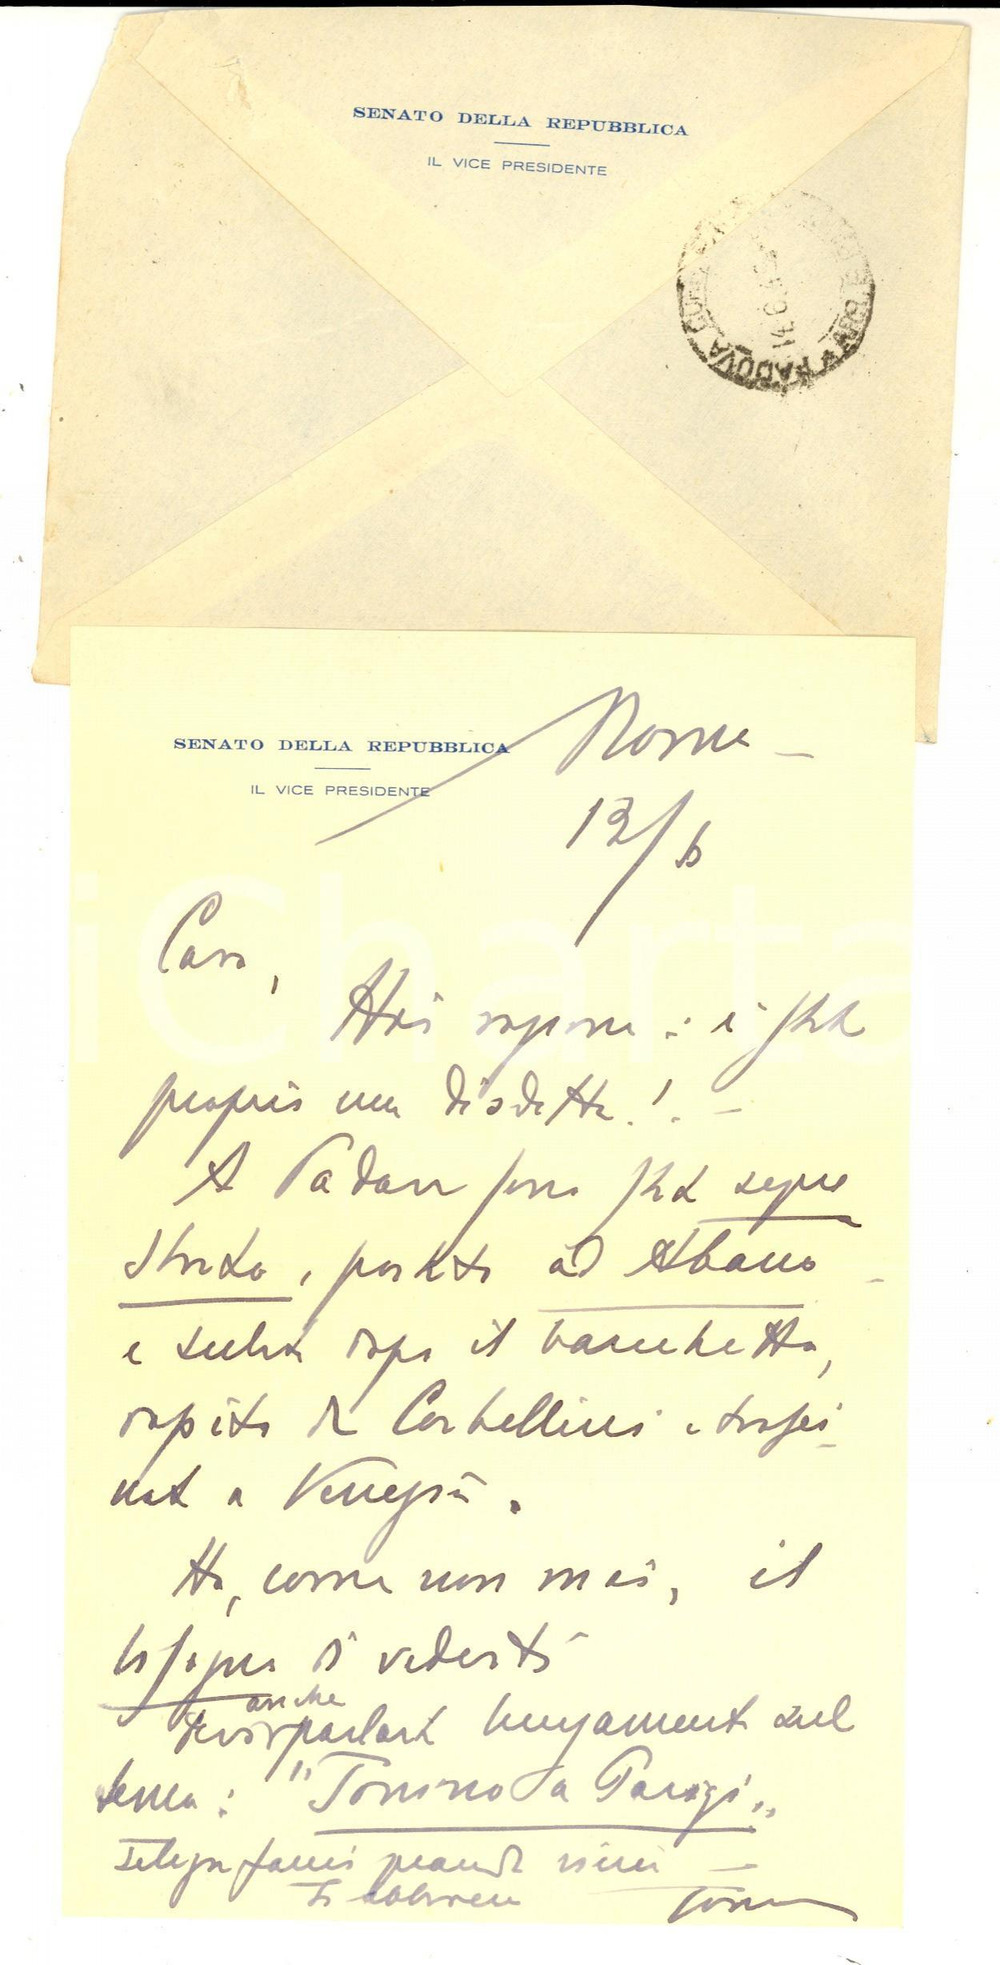 SENATO DELLA REPUBBLICA
IL VICE PRESIDENTE
PADOVA
SENATO DELLA REPUBBLICA
IL VICE PRESIDENTE
Roma -
13/6
Caro,
: è stata
proprio una disdetta! -
A Padova sono stato seque
strato, portato ad Abano
e subito dopo il banchetto,
rapito da Corbellini e trasci
nato a Venezia.
Ho, come non mai, il
bisogno di vederti
anche
Devo parlarti lungamente sul
tema: "Tonino a Parigi"
Telegrafami quando vieni -
Ti abbraccio